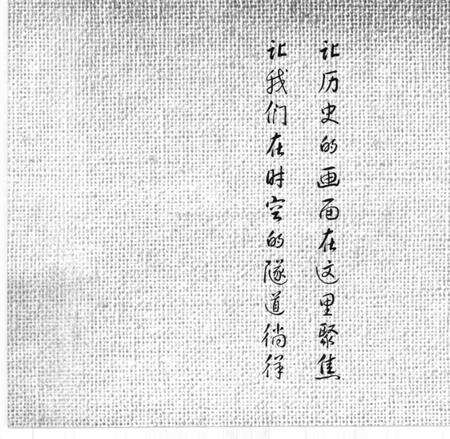 让历史的画面在这里聚焦
让我们在时空的隧道徜徉